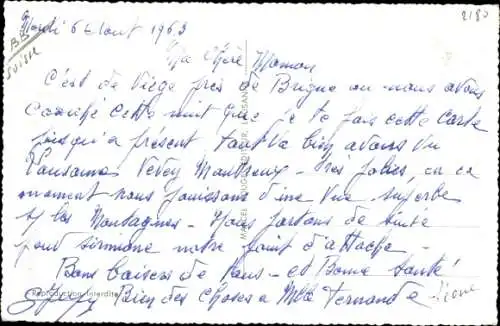 Mardi 6 Août 1963
2180
BB
SUISSE
Ma chère Maman
C'est de Viège près de Brigue ou nous avons
couché cette nuit que je te fais cette carte
jusqu'a présent tout va bien avons vu
Lausanne Vevey Montreux - très jolies, en ce
moment nous jouissons d'une vue superbe
s/ les Montagnes - Nous partons de suite
pour Sirmione notre point d'attache -
Bons baisers de nous - et Bonne Santé
Reproduction interdite
Bien des choses a Mme Fernande